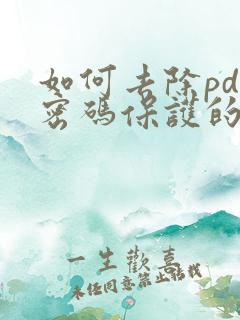 如何去除pd
密碼保護的
一生歡喜
未经同意禁止搭我